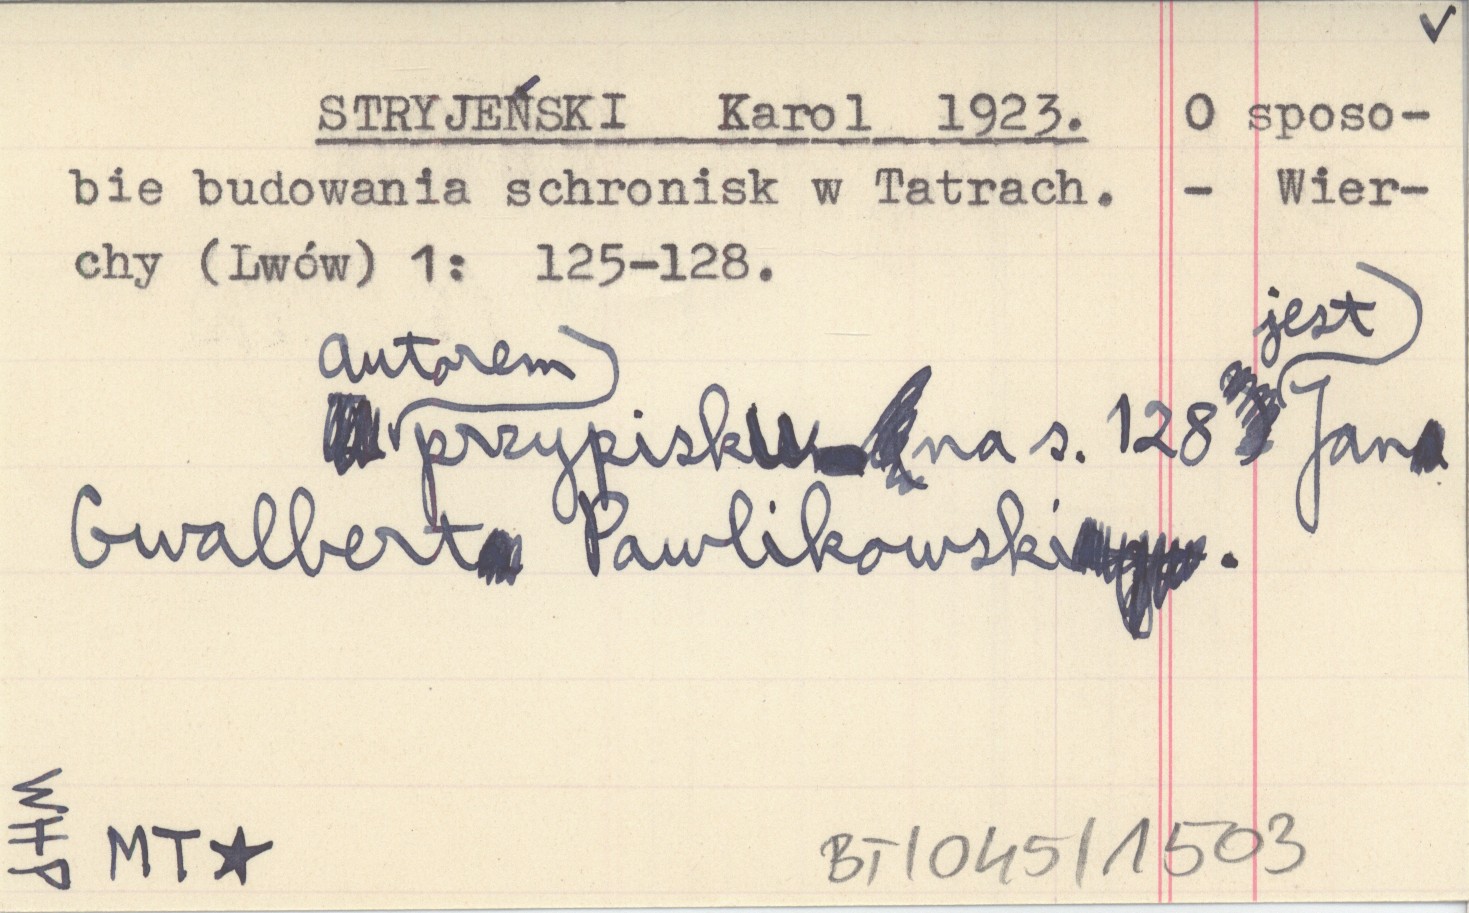 ✓
STRYJEŃSKI Karol 1923. O sposo-
bie budowania schronisk w Tatrach. - Wier-
chy (Lwów) 1: 125-128.
autorem przypisku na s. 128 jest Jan
Gwalbert Pawlikowski.
WHP
MT★
BT/045/1503